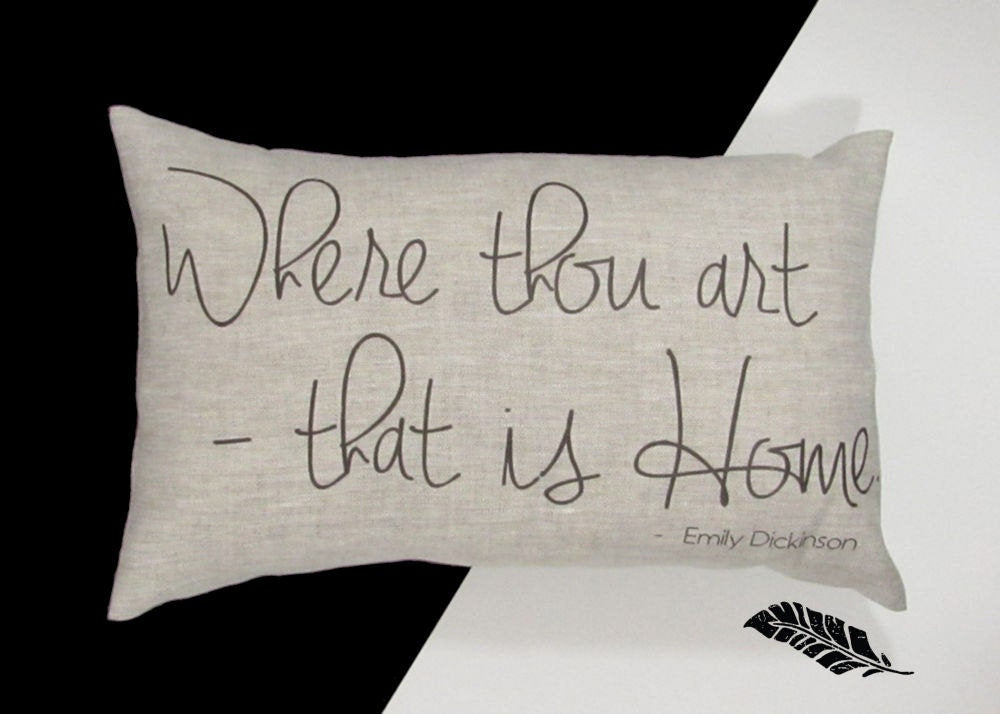 Where thou art
- that is Home.
- Emily Dickinson